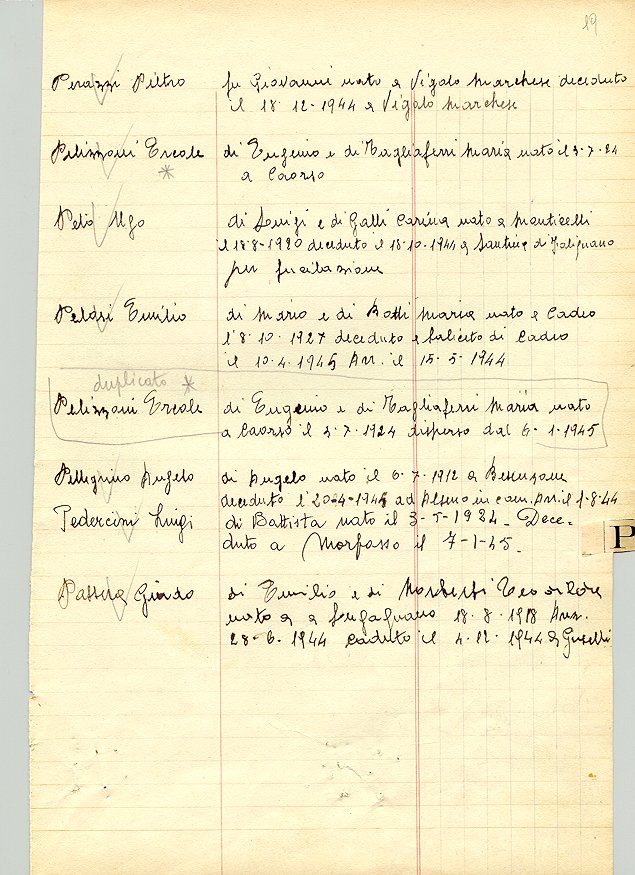 19
Perazzi Pietro fu Giovanni nato a Vigolo Marchese deceduto
il 18-12-1944 a Vigolo Marchese
Pelizzoni Ercole di Eugenio e di Tagliaferri Maria nato il 3-7-24
* a Caorso
Pelò Ugo di Luigi e di Galli Carina nato a Monticelli
il 18-8-1920 deceduto il 15-10-1944 a
per fucilazione
Pelosi Emilio di Mario e di Botti Maria nato a Cadeo
l'8-10-1927 deceduto a Saliceto di Cadeo
il 10-4-1945 Arr. il 15-5-1944
duplicato *
Pelizzoni Ercole di Eugenio e di Tagliaferri Maria nato
a Caorso il 3-7-1924 disperso dal 6-1-1945
Pellegrino Angelo di Angelo nato il 6-7-1912 a Besenzone
deceduto l' 20-4-1945 ad Alseno in com. Arr. il 1-8-44
Pederconi Luigi di Battista nato il 3-5-1924 - Dece-
duto a Morfasso il 7-1-45-
P
Passera Giondo di Emilio e di
nato a a Lugagnano 18-8-1918 Arr.
28-6-1944 caduto il 4-12-1944 a